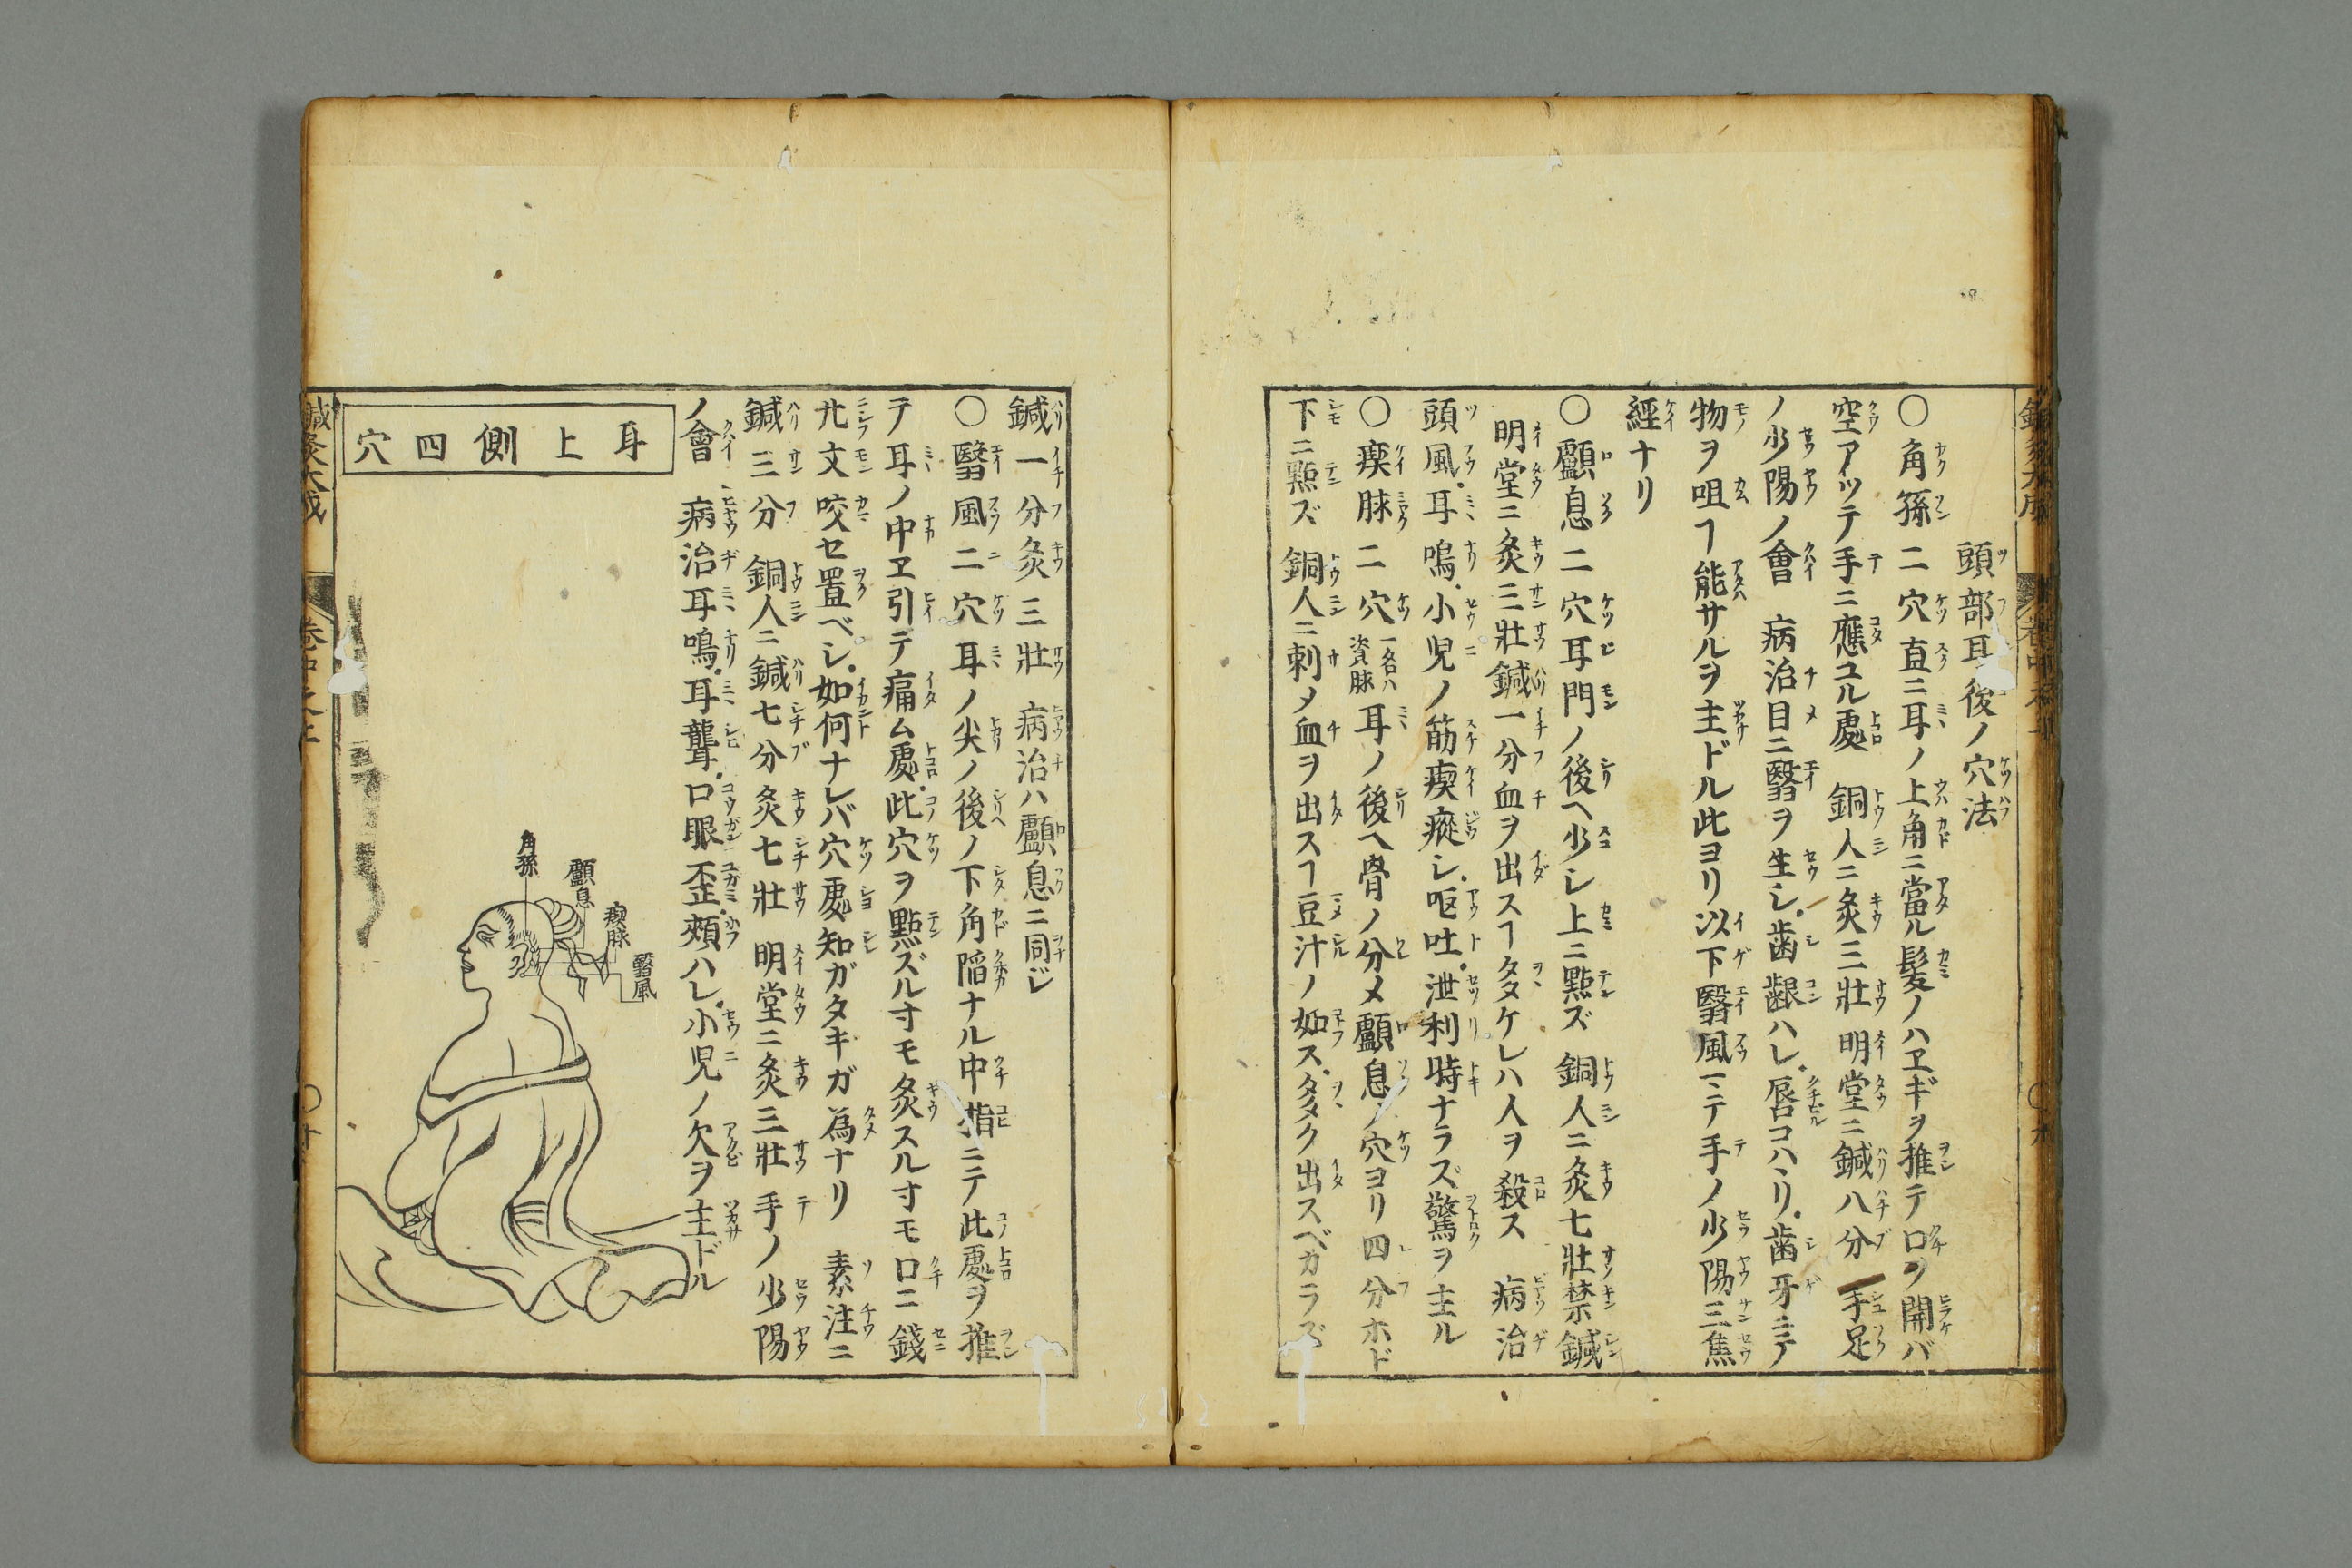 頭部耳後ノ穴法
〇角孫二穴直ニ耳ノ上角ニ當ル髪ノハヱギヲ推テ口ヲ開バ
空アツテ手ニ應ユル處 銅人ニ灸三壯 明堂ニ鍼八分 手足
ノ少陽ノ會 病治目ニ翳ヲ生シ.歯齦ハレ.唇コハヽリ.歯牙ニテ
物ヲ咀ヿ能サルヲ主ドル此ヨリ以下翳風ニテ手ノ少陽三焦
經ナリ
〇顱息二穴耳門ノ後ヘ少シ上ニ點ズ 銅人ニ灸七壯禁鍼
明堂ニ灸三壯鍼一分血ヲ出スヿタヽケレハ人ヲ殺ス 病治
頭風.耳鳴.小児ノ筋瘈瘲シ.嘔吐.泄利時ナラズ驚ヲ主ル
〇瘈脉二穴一名ハ資脉耳ノ後ヘ骨ノ分メ顱息ノ穴ヨリ四分ホド
下ニ點ズ 銅人ニ刺メ血ヲ出スヿ豆汁ノ如ス.多ク出スベカラズ
鍼灸大成
卷中之上
鍼一分灸三壯 病治ハ顱息ニ同ジ
〇翳風二穴耳ノ尖ノ後ノ下角陷ナル中指ニテ此處ヲ推
テ耳ノ中ヱ引テ痛ム處.此穴ヲ點ズル寸モ灸スル寸モ口ニ錢
廿文咬セ置ベシ.如何ナレバ穴處知ガタキガ為ナリ 素注ニ
鍼三分 銅人ニ鍼七分灸七壯 明堂ニ灸三壯 手ノ少陽
ノ會 病治耳鳴.耳聾.口眼歪.頬ハレ.小児ノ欠ヲ主ドル
耳上側四穴
角孫
顱息
瘈脉
翳風
鍼灸大成
卷中之上
〇十